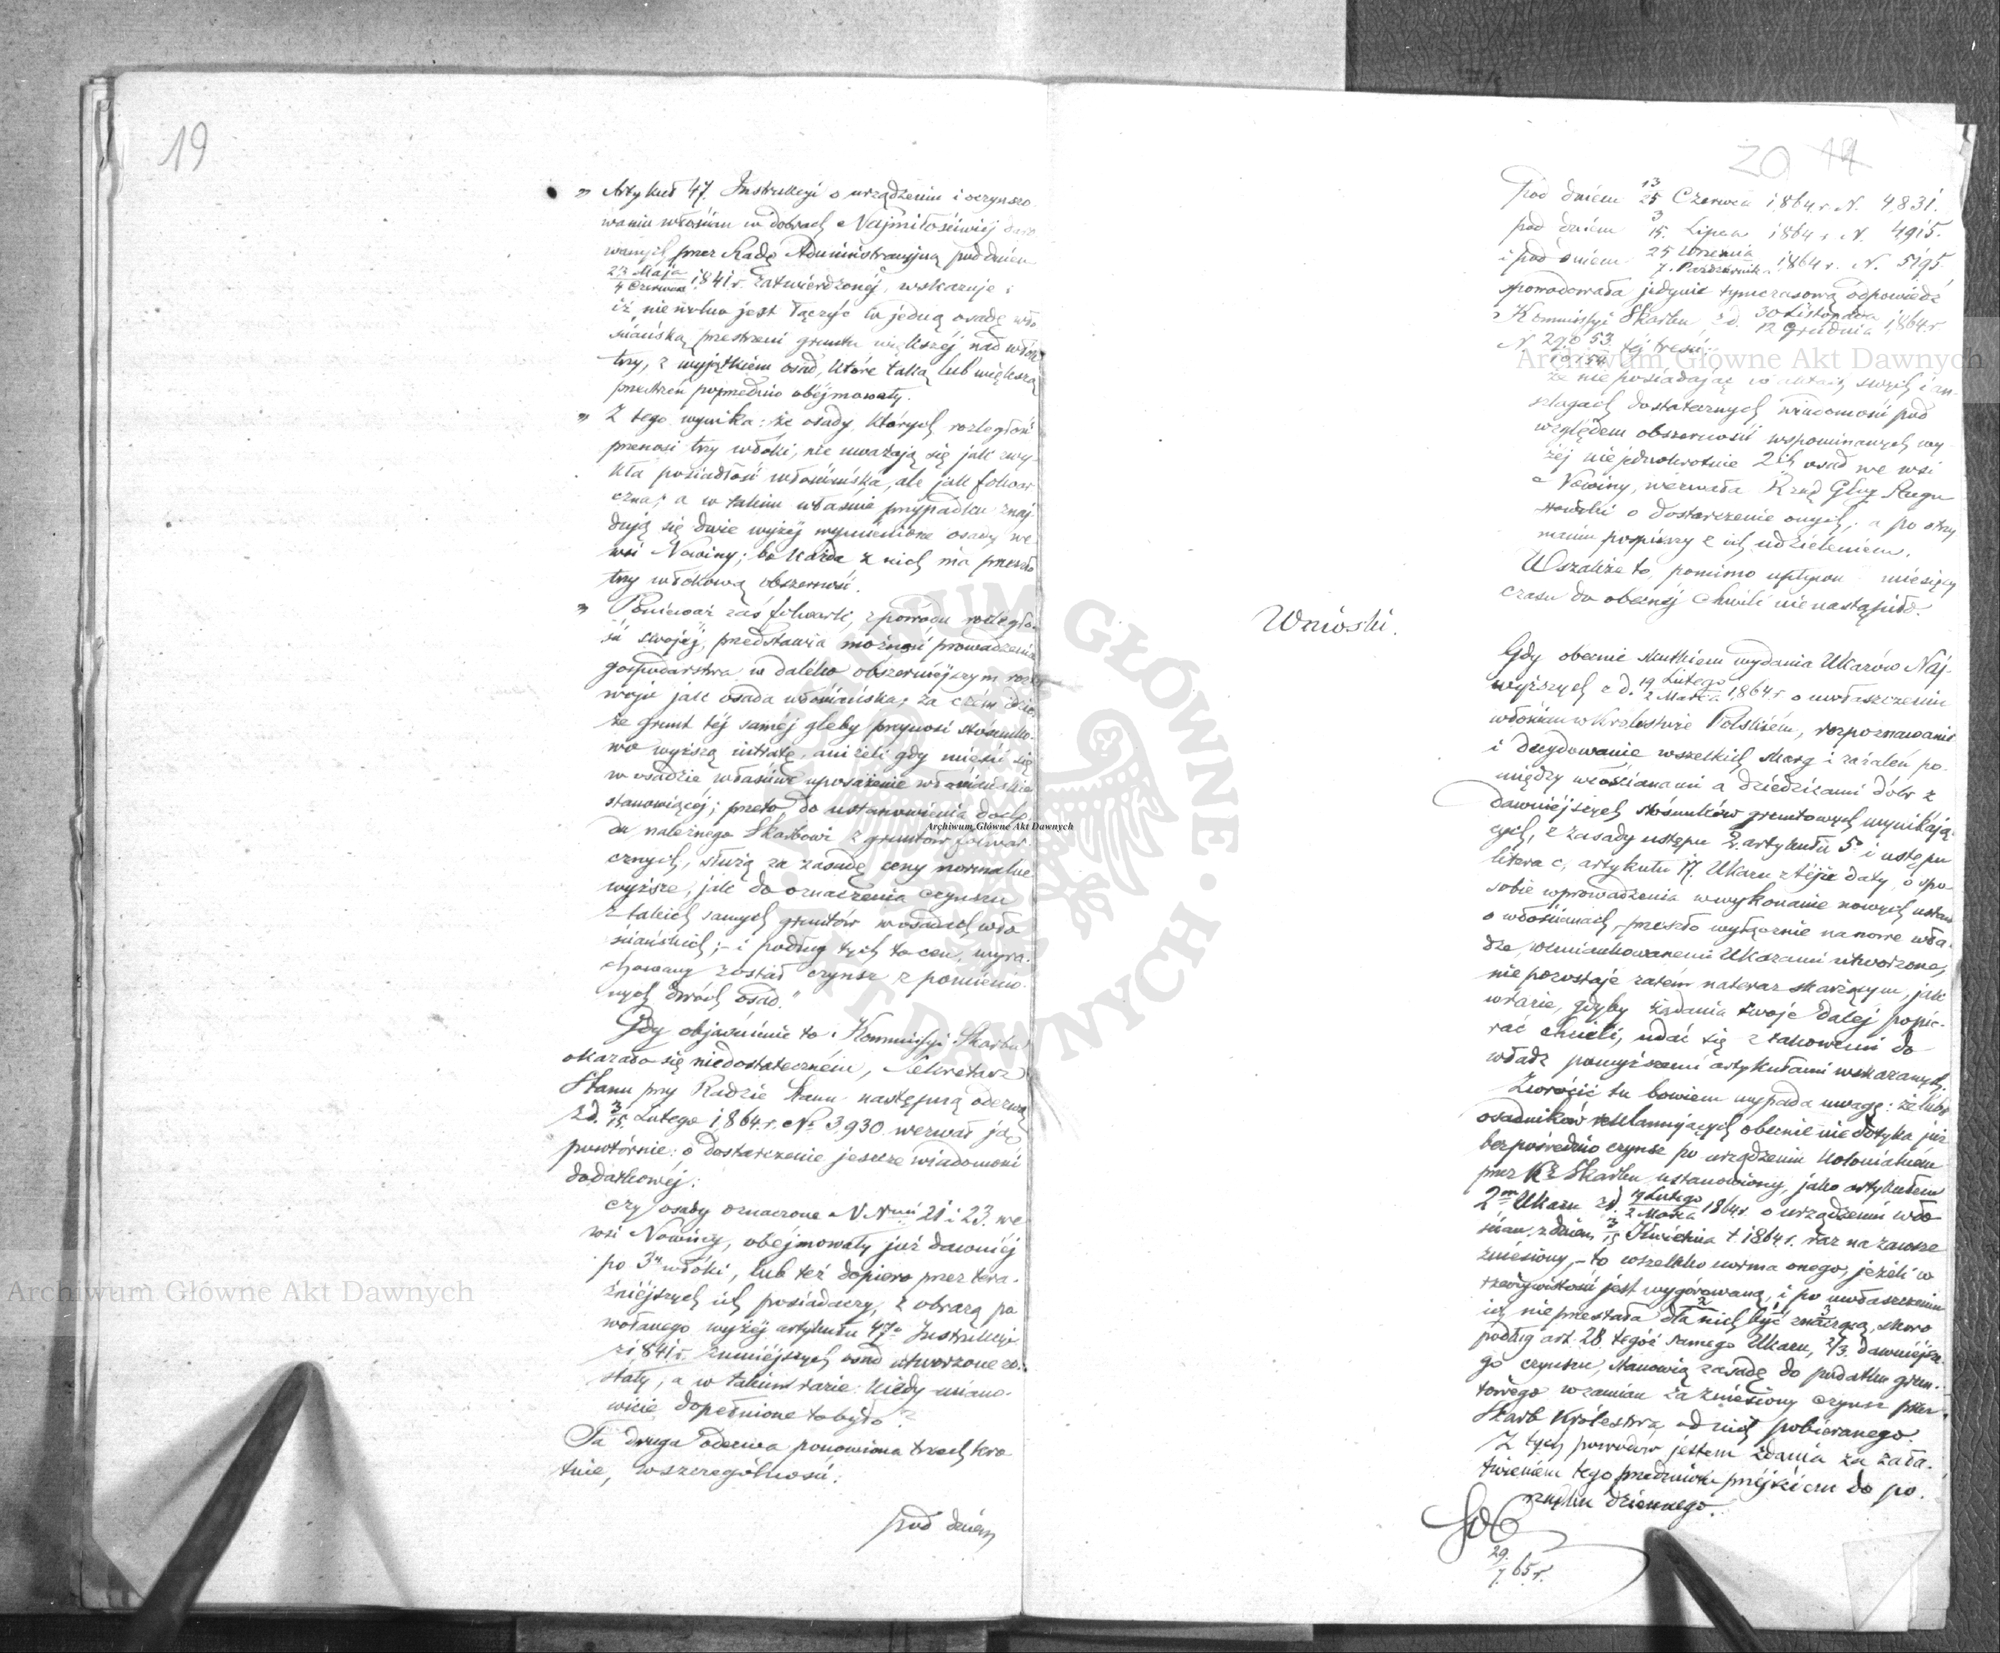 19
„ Artykuł 47. Instrukcyi o urządzeniu i oczynszo-
waniu włościan w dobrach Najmiłościwiej daro
wanych przez Radę Administracyjną pod dniem
23 Maja
4 Czerwca 1841 r. zatwierdzonéj, wskazuje:
iż nie wolno jest łączyć w jedną osadę wło
ściańską przestrzeni gruntu większéj nad włók
trzy, z wyjątkiem osad, które taką lub większą
przestrzeń poprzednio obejmowały.
„ Z tego wynika: że osady, których rozległość
przenosi trzy włóki, nie uważają się jak zwy-
kła posiadłość włościańska, ale jak folwar
czna; a w takim właśnie przypadku znaj
dują się dwie wyżéj wymienione osady we
wsi Nowiny; bo każda z nich ma przeszło
trzy włókową obszerność.
„ Ponieważ zaś folwark, z powodu rozległo-
ści swojéj, przedstawia możność prowadzenia
gospodarstwa w daleko obszerniejszym roz
woju jak osada włościańska; za czém idzie
że grunt téj saméj gleby przynosi stosunko-
wo wyższą intratę, aniżeli gdy mieści się
w osadzie właściwe uposażenie włościańskie
stanowiącéj; przeto do ustanowienia docho
du należnego Skarbowi z gruntów folwar
cznych, służą za zasadę ceny normalne
wyższe, jak do oznaczenia czynszu
z takich samych gruntów w osadach wło
ściańskich; - i podług tych to cen, wyra-
chowany został czynsz z pomienio-
nych dwóch osad."
Gdy objaśnienie to Kommissyi Skarbu
okazało się niedostateczném, Sekretarz
Stanu przy Radzie Stanu następną odezwą
z d. 3/15 Lutego 1864 r. No 3,930 wezwał ją
powtórnie: o dostarczenie jeszcze wiadomości
dodatkowéj:
czy osady oznaczone NNmi 21 i 23. we
wsi Nowiny, obejmowały już dawniéj
po 3y włóki, lub też dopiero przez tera-
źniejszych ich posiadaczy, z obrazą po
wołanego wyżéj artykułu 47o Instrukcyi
z 1841 r. z mniejszych osad utworzone zo-
stały; a w takim razie: kiedy miano-
wicie dopełnione to było?
Ta druga odezwa ponowiona trzech kro
tnie, w szczególności:
pod dniem
20 19
Pod dniem 13/25 Czerwca 1,864 r. N. 4,831.
pod dniem 3/15. Lipca 1864 r. N. 4915.
i pod dniem 25 Września
7. Października 1,864 r. N. 5195
spowodowała jedynie tymczasową odpowiedź
Kommissyi Skarbu, z d. 30 Listopada
12 Grudnia 1,864 r
téj treści:
że nie posiadając w aktach swych i an-
szlagach dostatecznych wiadomości pod
względem obszerności wspominanych wy
żéj niejednokrotnie 2ch osad we wsi
Nowiny, wezwała Rząd Gbny Augu
stowski o dostarczenie onych; a po otrzy
maniu pospieszy z ich udzieleniem.
Wszakże to, pomimo upływu miesięcy
czasu do obecnéj chwili nie nastąpiło.
Wnioski.
Gdy obecnie skutkiem wydania Ukazów Naj-
wyższych z d. 19 Lutego
2 Marca 1864 r. o uwłaszczeniu
włościan w Królestwie Polskiém, rozpoznawanie
i decydowanie wszelkich skarg i zażaleń po-
między włościanami a dziedzicami dóbr z
dawniejszych stósunków gruntowych wynikają-
cych, z zasady ustępu 2. artykułu 5o i ustępu
litera c, artykułu 17. Ukazu z téjże daty, o spo-
sobie wprowadzenia w wykonanie nowych ustaw
o włościanach, przeszło wyłącznie na nowe wła-
dze, wemiankowanemi Ukazami utworzone,
nie pozostaje zatém na teraz skarżącym, jak
w razie, gdyby żądania swoje daléj popie-
rać chcieli, udać się z takowemi do
władz powyższemi artykułami wskazanych.
Zwrócić tu bowiem wypada uwagę: że lubo
osadników reklamujących obecnie nie dotyka już
bezpośrednio czynsz po urządzeniu kolonialném
przez K. Skarbu ustanowiony, jako artykułem
2m Ukazu z d. 19 Lutego
2 Marca 1864 r. o urządzeniu wło
ścian z dniem 3/15 Kwietnia 1864 r. raz na zawsze
zniesiony, - to wszelako norma onego, jeżeli w
rzeczywistości jest wygórowaną, i po uwłaszczeniu
ich nie przestała dla nich być znaczącą, skoro
podług art. 28. tegoż samego Ukazu, 2/3 dawniejsze-
go czynszu, stanowią zasadę do podatku grun-
towego w zamian za zniesiony czynsz przez
Skarb Królestwa od nich pobieranego.
Z tych powodów jestem zdania za zała-
twieniem tego przedmiotu przejściem do po-
rządku dziennego.
29/7. 65 r.
Archiwum Główne Akt Dawnych
Archiwum Główne Akt Dawnych
Archiwum Główne Akt Dawnych
ARCHIWUM GŁÓWNE AKT DAWNYCH